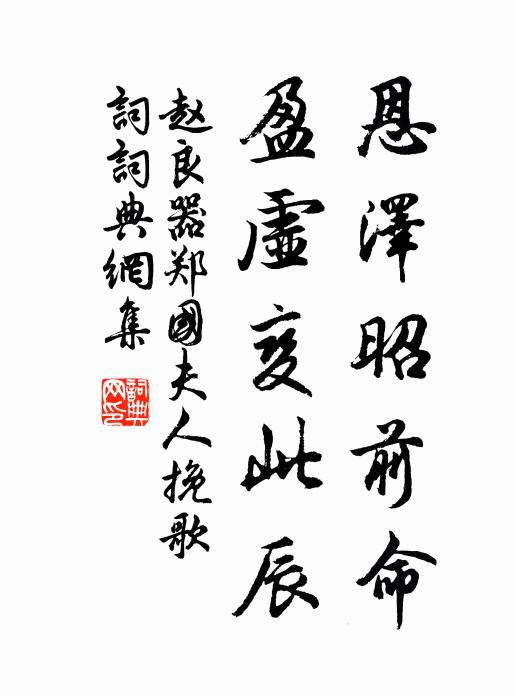 恩澤昭前命
盈虛变此辰
赵良器郑國夫人挽歌
詞詞典網集
詞典
网印